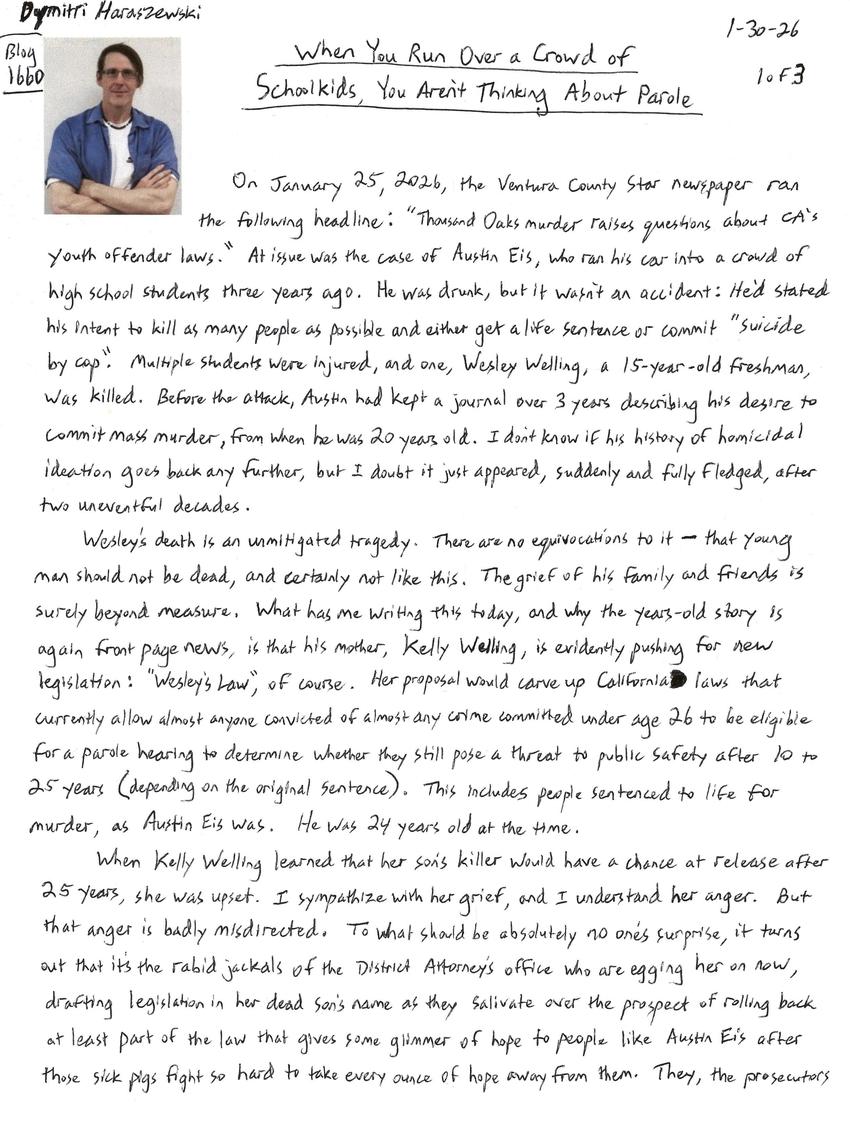 Dymitri Haraszewski
1-30-26
Blog
1660
When You Run Over a Crowd of
Schoolkids, You Aren't Thinking About Parole
1 of 3
On January 25, 2026, the Ventura County Star newspaper ran
the following headline: "Thousand Oaks murder raises questions about CA's
youth offender laws." At issue was the case of Austin Eis, who ran his car into a crowd of
high school students three years ago. He was drunk, but it wasn't an accident: He'd stated
his intent to kill as many people as possible and either get a life sentence or commit "suicide
by cop". Multiple students were injured, and one, Wesley Welling, a 15-year-old freshman,
was killed. Before the attack, Austin had kept a journal over 3 years describing his desire to
commit mass murder, from when he was 20 years old. I don't know if his history of homicidal
ideation goes back any further, but I doubt it just appeared, suddenly and fully fledged, after
two uneventful decades.
Wesley's death is an unmitigated tragedy. There are no equivocations to it — that young
man should not be dead, and certainly not like this. The grief of his family and friends is
surely beyond measure. What has me writing this today, and why the years-old story is
again front page news, is that his mother, Kelly Welling, is evidently pushing for new
legislation: "Wesley's Law", of course. Her proposal would carve up California laws that
currently allow almost anyone convicted of almost any crime committed under age 26 to be eligible
for a parole hearing to determine whether they still pose a threat to public safety after 10 to
25 years (depending on the original sentence). This includes people sentenced to life for
murder, as Austin Eis was. He was 24 years old at the time.
When Kelly Welling learned that her son's killer would have a chance at release after
25 years, she was upset. I sympathize with her grief, and I understand her anger. But
that anger is badly misdirected. To what should be absolutely no one's surprise, it turns
out that it's the rabid jackals of the District Attorney's office who are egging her on now,
drafting legislation in her dead son's name as they salivate over the prospect of rolling back
at least part of the law that gives some glimmer of hope to people like Austin Eis after
those sick pigs fight so hard to take every ounce of hope away from them. They, the prosecutors